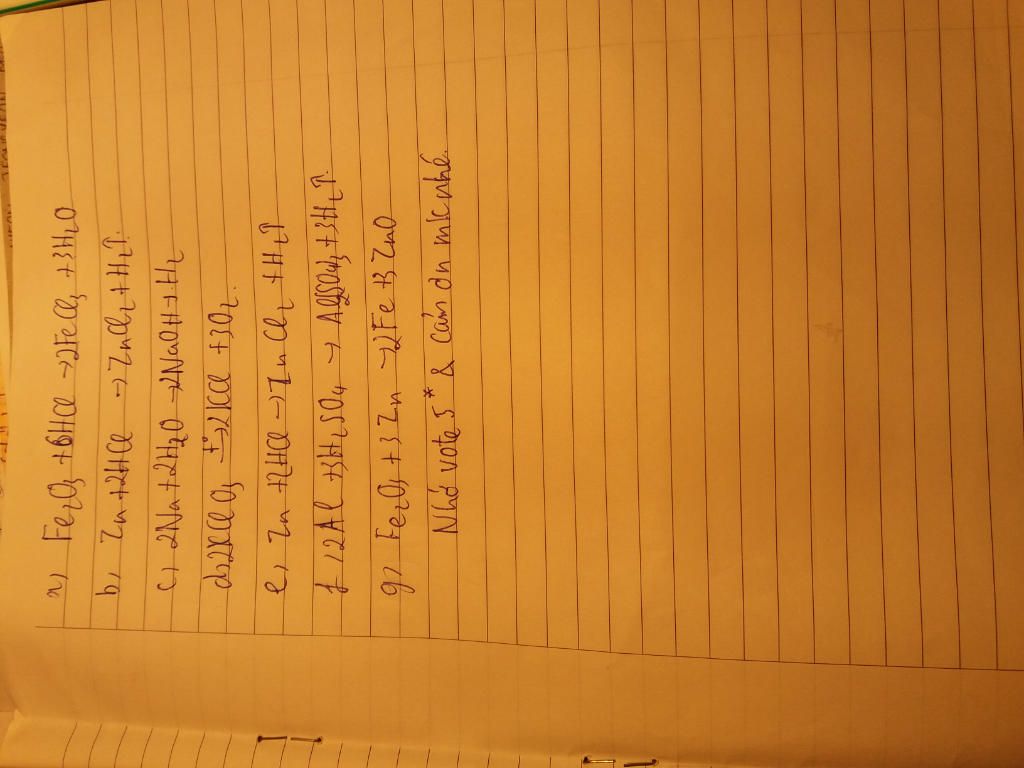 a, Fe₂O₃ + 6HCl → 2FeCl₃ + 3H₂O
b, Zn + 2HCl → ZnCl₂ + H₂↑.
c, 2Na + 2H₂O → 2NaOH + H₂
d, 2KClO₃ t°→ 2KCl + 3O₂.
e, Zn + 2HCl → ZnCl₂ + H₂↑
f, 2Al + 3H₂SO₄ → Al₂(SO₄)₃ + 3H₂↑.
g, Fe₂O₃ + 3Zn → 2Fe + 3ZnO
Nhớ vote 5* & cảm ơn mk nhé.